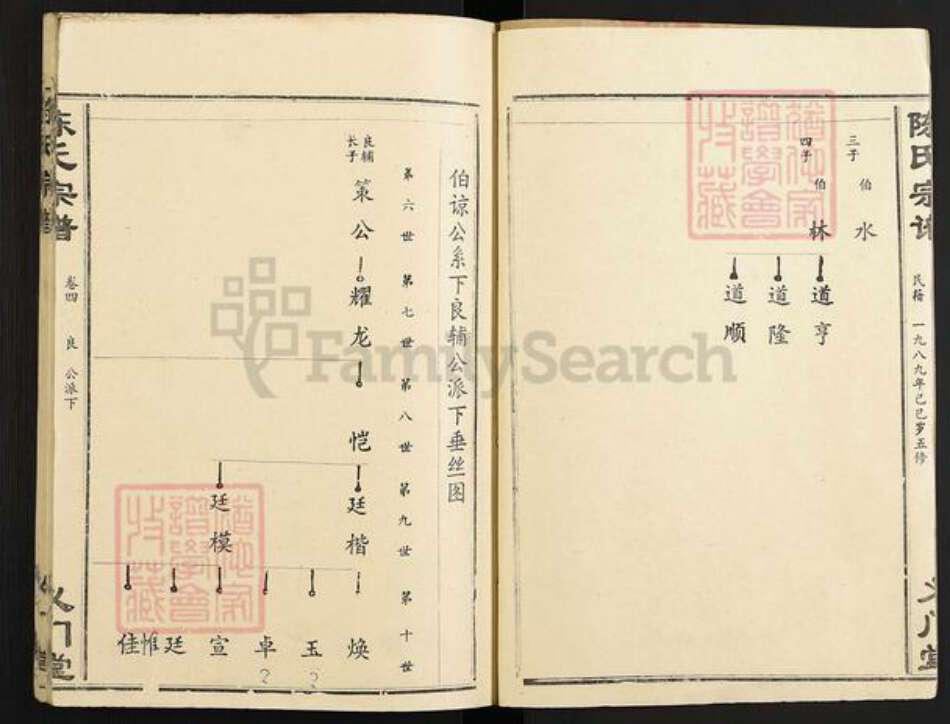 陈氏宗谱
民指 一九八九年己巳岁五修
义门堂
三子
伯
水
四子
伯
林
道亨
道隆
道顺
伯谅公系下良辅公派下垂丝图
第六世 第七世 第八世 第九世 第十世
良辅
长子
策公
耀龙
恺
廷楷
廷模
焕
玉
?
卓
?
宣
廷
惟
佳
陈氏宗谱
卷四 良 公派下
义门堂
FamilySearch